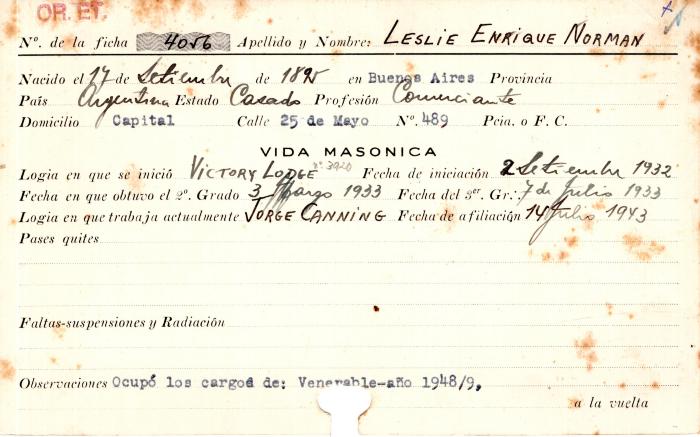 OR. ET.
Nº. de la ficha 4056 Apellido y Nombre: LESLIE ENRIQUE NORMAN
Nacido el 17 de Setiembre de 1895 en Buenos Aires Provincia
País Argentina Estado Casado Profesión Comerciante
Domicilio Capital Calle 25 de Mayo Nº. 489 Pcia. o F. C.
VIDA MASONICA
Logia en que se inició VICTORY LODGE nº 3920 Fecha de iniciación 2 Setiembre 1932
Fecha en que obtuvo el 2º. Grado 3 Marzo 1933 Fecha del 3er. Gr.: 7 de Julio 1933
Logia en que trabaja actualmente JORGE CANNING Fecha de afiliación 14 Julio 1943
Pases quites
Faltas-suspensiones y Radiación
Observaciones Ocupó los cargos de: Venerable-año 1948/9,
a la vuelta